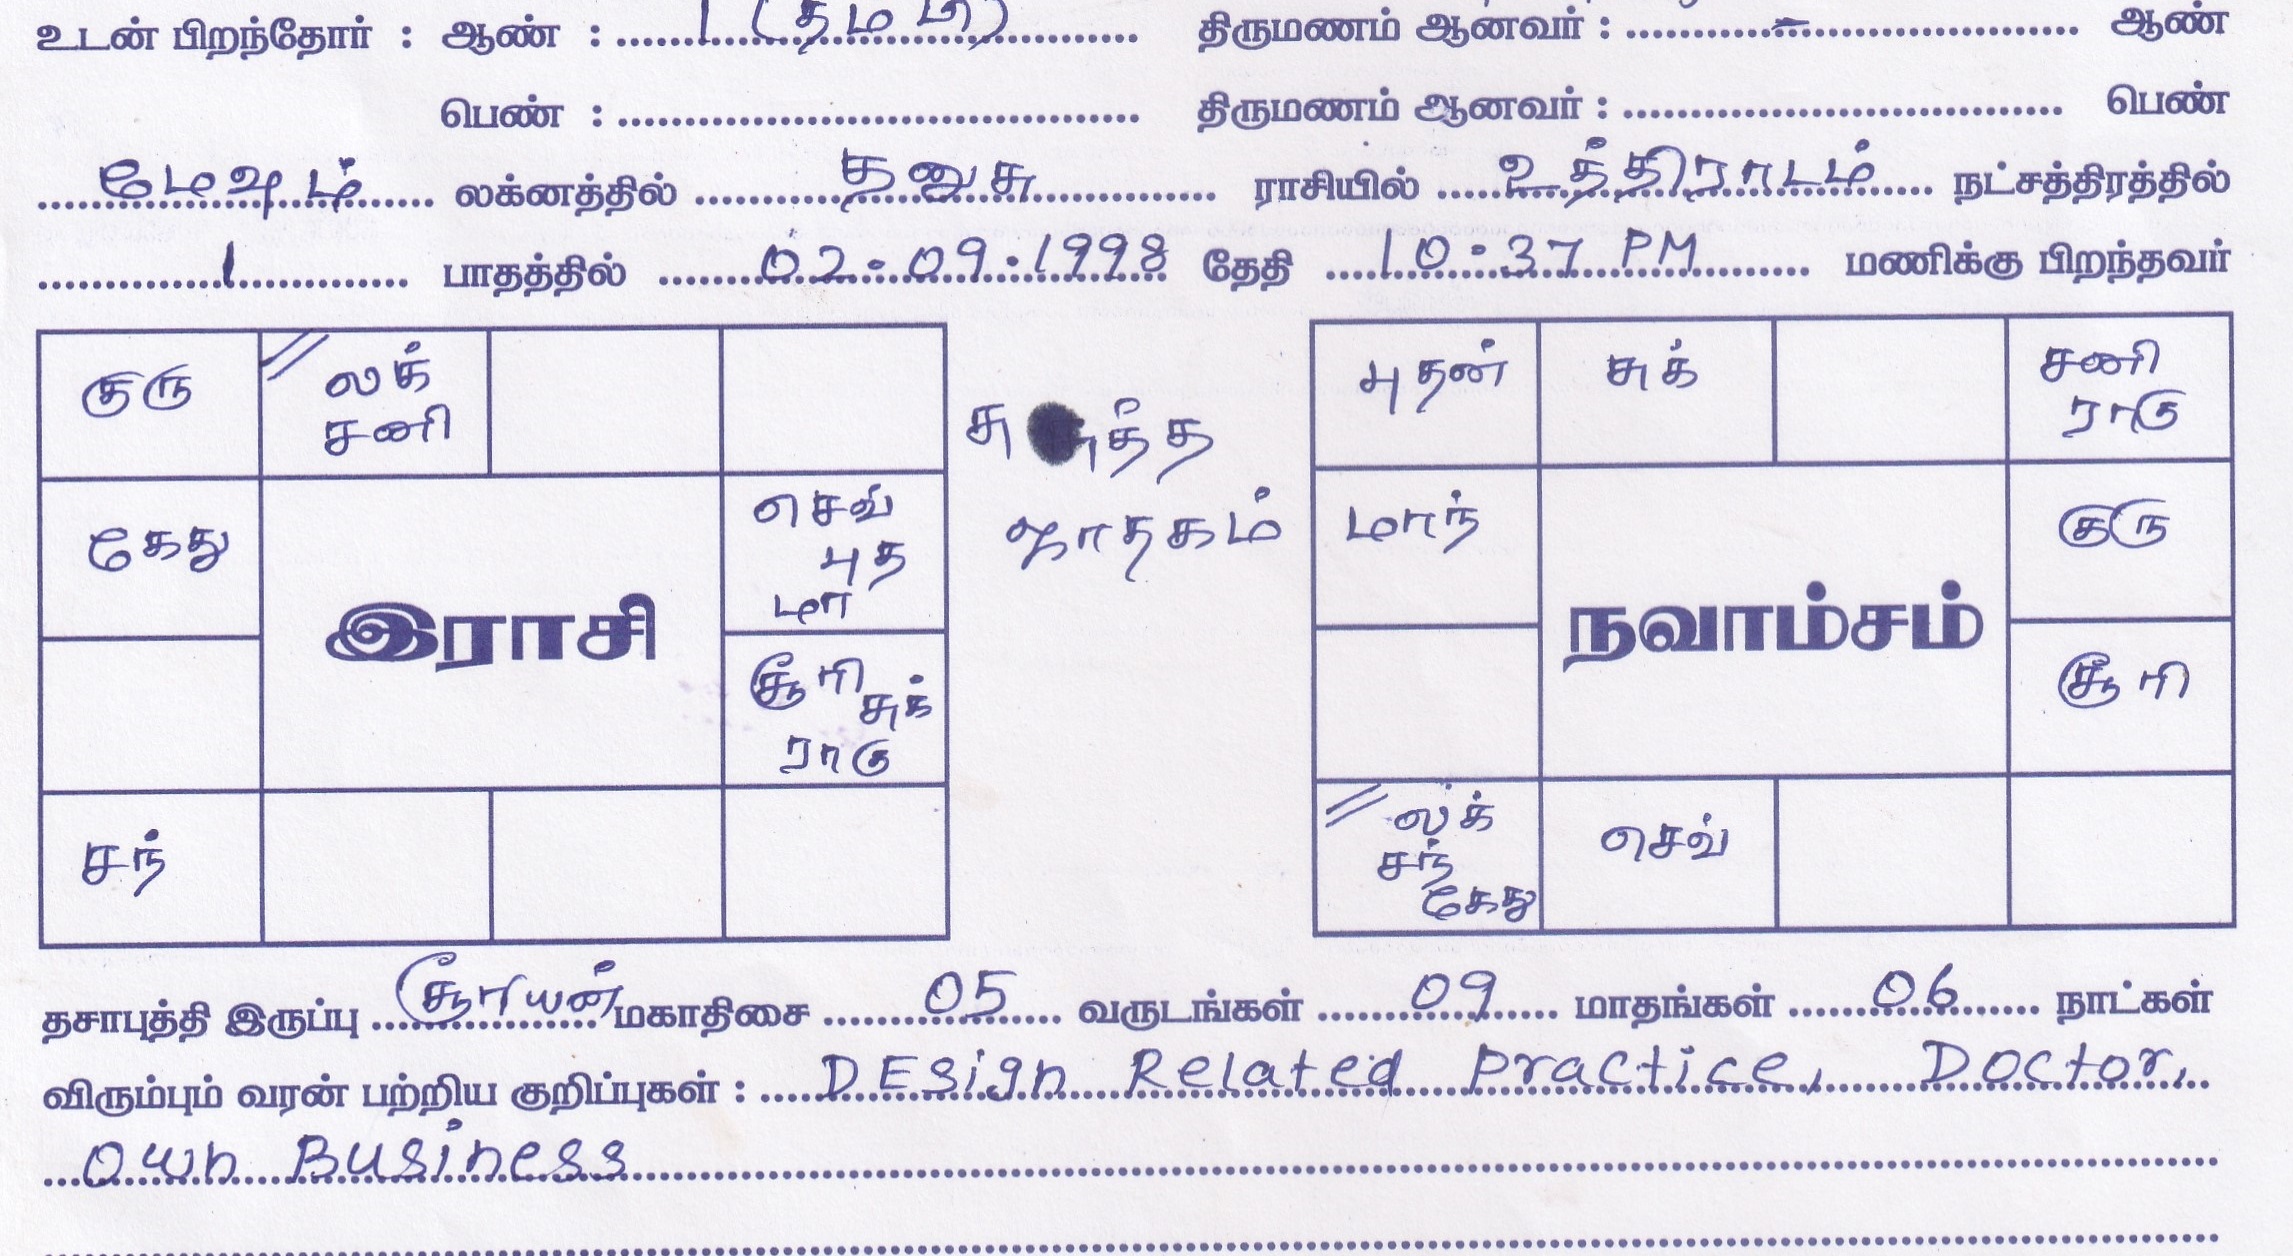 உடன் பிறந்தோர் : ஆண் : 1 (தம்பி) திருமணம் ஆனவர் : – ஆண்
பெண் : திருமணம் ஆனவர் : பெண்
மேஷம் லக்னத்தில் தனுசு ராசியில் உத்திராடம் நட்சத்திரத்தில்
1 பாதத்தில் 02-09-1998 தேதி 10:37 PM மணிக்கு பிறந்தவர்
குரு
லக்
சனி
கேது
செவ்
புத
மா
இராசி
சூரி
சுக்
ராகு
சந்
ஜாதகம்
புதன்
சுக்
சனி
ராகு
மாந்
குரு
நவாம்சம்
சூரி
லக்
சந்
கேது
செவ்
தசாபுத்தி இருப்பு சூரியன் மகாதிசை 05 வருடங்கள் 09 மாதங்கள் 06 நாட்கள்
விரும்பும் வரன் பற்றிய குறிப்புகள் : DESign Related Practice, Doctor,
Own Business